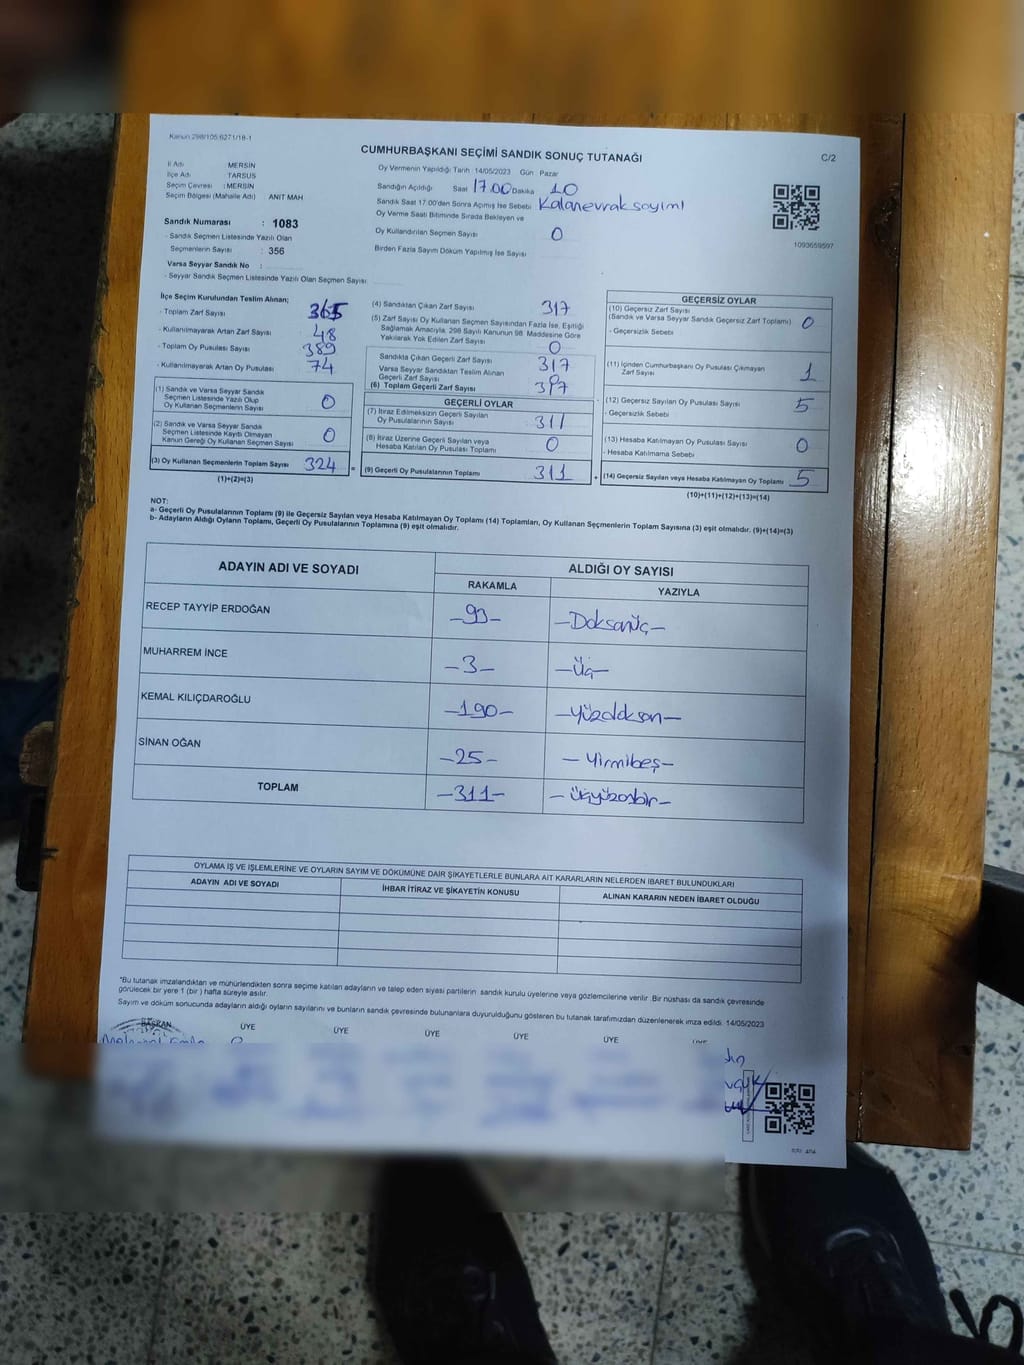 Kanun 298/105;6271/18-1
CUMHURBAŞKANI SEÇİMİ SANDIK SONUÇ TUTANAĞI
C/2
İl Adı : MERSİN
İlçe Adı : TARSUS
Seçim Çevresi : MERSİN
Seçim Bölgesi (Mahalle Adı) ANIT MAH
Oy Vermenin Yapıldığı: Tarih 14/05/2023 Gün Pazar
Sandığın Açıldığı Saat 17.00 Dakika 10
Sandık Saat 17:00'den Sonra Açılmış İse Sebebi Kalanevraksayımı
Oy Verme Saati Bitiminde Sırada Bekleyen ve
Oy Kullandırılan Seçmen Sayısı 0
Birden Fazla Sayım Döküm Yapılmış İse Sayısı
1093659597
Sandık Numarası : 1083
- Sandık Seçmen Listesinde Yazılı Olan
Seçmenlerin Sayısı : 356
Varsa Seyyar Sandık No :
- Seyyar Sandık Seçmen Listesinde Yazılı Olan Seçmen Sayısı
İlçe Seçim Kurulundan Teslim Alınan;
- Toplam Zarf Sayısı 365
- Kullanılmayarak Artan Zarf Sayısı 48
- Toplam Oy Pusulası Sayısı 389
- Kullanılmayarak Artan Oy Pusulası 74
(1) Sandık ve Varsa Seyyar Sandık
Seçmen Listesinde Yazılı Olup
Oy Kullanan Seçmenlerin Sayısı 0
(2) Sandık ve Varsa Seyyar Sandık
Seçmen Listesinde Kayıtlı Olmayan
Kanun Gereği Oy Kullanan Seçmen Sayısı 0
(3) Oy Kullanan Seçmenlerin Toplam Sayısı 324
(1)+(2)=(3)
(4) Sandıktan Çıkan Zarf Sayısı 317
(5) Zarf Sayısı Oy Kullanan Seçmen Sayısından Fazla İse, Eşitliği
Sağlamak Amacıyla; 298 Sayılı Kanunun 98. Maddesine Göre
Yakılarak Yok Edilen Zarf Sayısı 0
Sandıkta Çıkan Geçerli Zarf Sayısı 317
Varsa Seyyar Sandıktan Teslim Alınan
Geçerli Zarf Sayısı 0
(6) Toplam Geçerli Zarf Sayısı 317
GEÇERLİ OYLAR
(7) İtiraz Edilmeksizin Geçerli Sayılan
Oy Pusulalarının Sayısı 311
(8) İtiraz Üzerine Geçerli Sayılan veya
Hesaba Katılan Oy Pusulası Toplamı 0
= (9) Geçerli Oy Pusulalarının Toplamı 311
GEÇERSİZ OYLAR
(10) Geçersiz Zarf Sayısı
(Sandık ve Varsa Seyyar Sandık Geçersiz Zarf Toplamı) 0
- Geçersizlik Sebebi
(11) İçinden Cumhurbaşkanı Oy Pusulası Çıkmayan
Zarf Sayısı 1
(12) Geçersiz Sayılan Oy Pusulası Sayısı 5
- Geçersizlik Sebebi
(13) Hesaba Katılmayan Oy Pusulası Sayısı 0
- Hesaba Katılmama Sebebi
+ (14) Geçersiz Sayılan veya Hesaba Katılmayan Oy Toplamı 5
(10)+(11)+(12)+(13)=(14)
NOT:
a- Geçerli Oy Pusulalarının Toplamı (9) ile Geçersiz Sayılan veya Hesaba Katılmayan Oy Toplamı (14) Toplamları, Oy Kullanan Seçmenlerin Toplam Sayısına (3) eşit olmalıdır. (9)+(14)=(3)
b- Adayların Aldığı Oyların Toplamı, Geçerli Oy Pusulalarının Toplamına (9) eşit olmalıdır.
ADAYIN ADI VE SOYADI
ALDIĞI OY SAYISI
RAKAMLA YAZIYLA
RECEP TAYYİP ERDOĞAN -93- -Doksanüç-
MUHARREM İNCE -3- -Üç-
KEMAL KILIÇDAROĞLU -190- -yüzdoksan-
SİNAN OĞAN -25- -yirmibeş-
TOPLAM -311- -üçyüzonbir-
OYLAMA İŞ VE İŞLEMLERİNE VE OYLARIN SAYIM VE DÖKÜMÜNE DAİR ŞİKAYETLERLE BUNLARA AİT KARARLARIN NELERDEN İBARET BULUNDUKLARI
ADAYIN ADI VE SOYADI İHBAR İTİRAZ VE ŞİKAYETİN KONUSU ALINAN KARARIN NEDEN İBARET OLDUĞU
*Bu tutanak imzalandıktan ve mühürlendikten sonra seçime katılan adayların ve talep eden siyasi partilerin sandık kurulu üyelerine veya gözlemcilerine verilir. Bir nüshası da sandık çevresinde
görülecek bir yere 1 (bir ) hafta süreyle asılır.
Sayım ve döküm sonucunda adayların aldığı oyların sayılarını ve bunların sandık çevresinde bulunanlara duyurulduğunu gösteren bu tutanak tarafımızdan düzenlenerek imza edildi. 14/05/2023
BAŞKAN ÜYE ÜYE ÜYE ÜYE ÜYE ÜYE